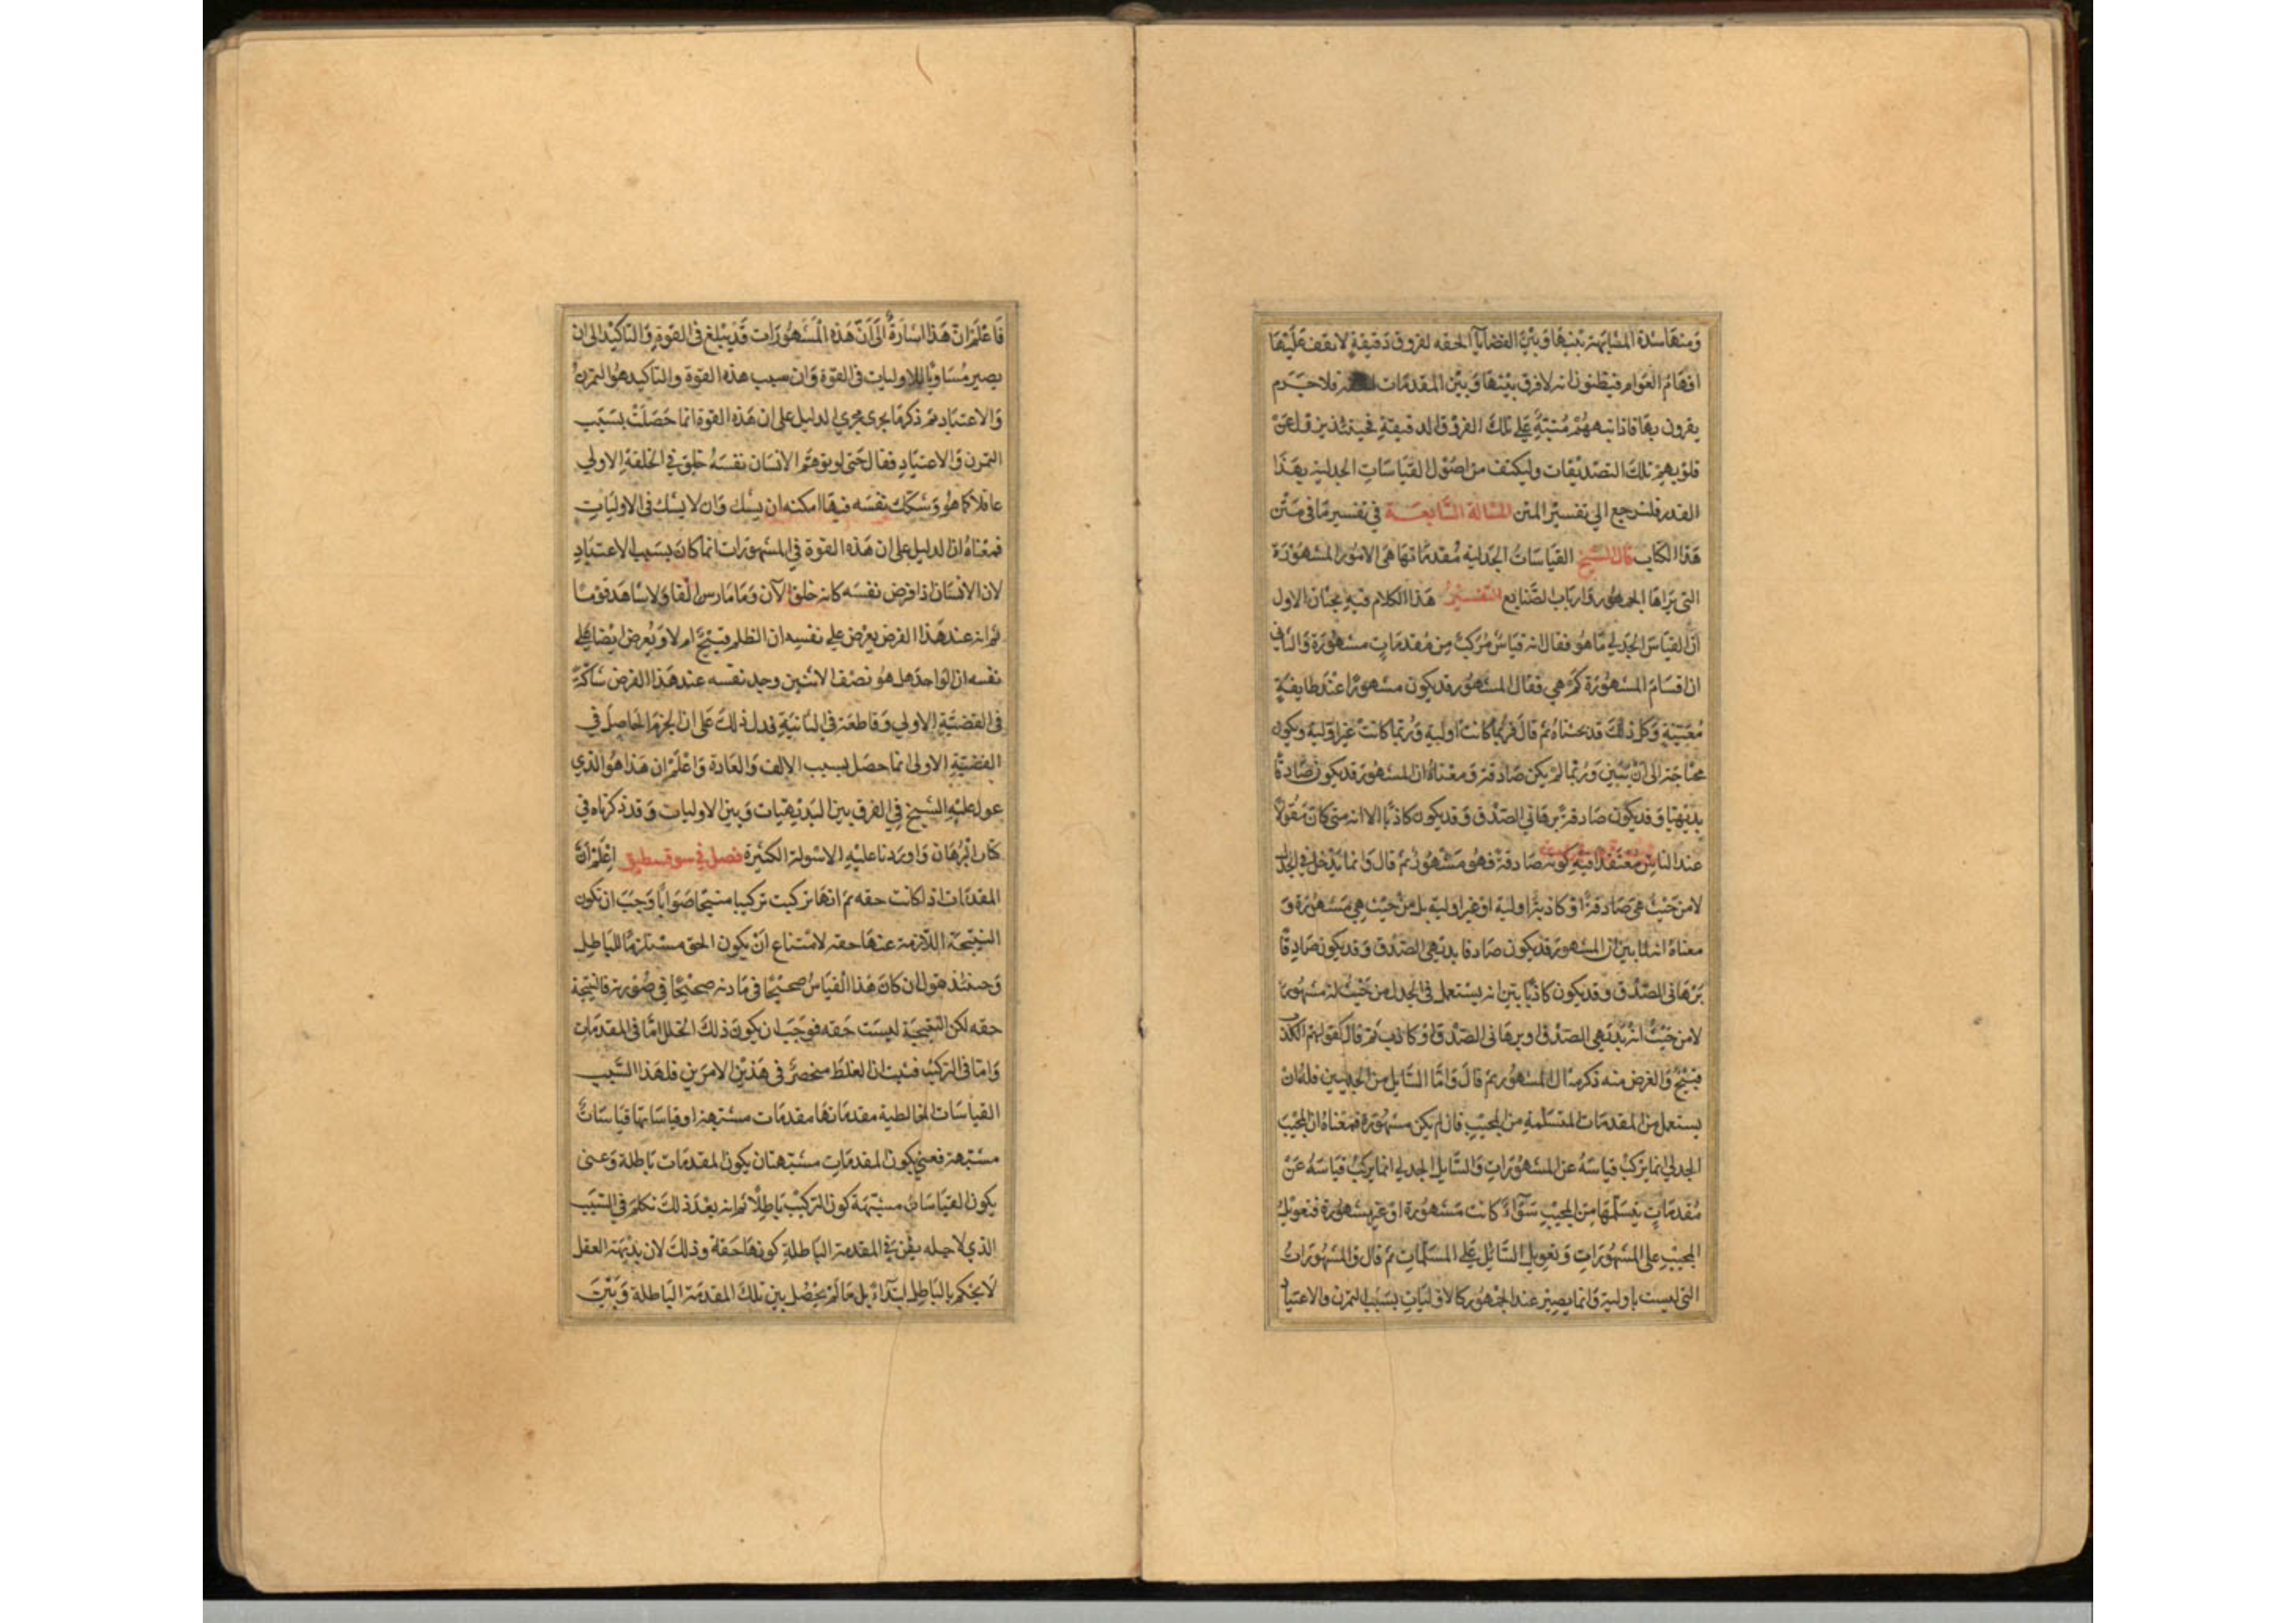 ومنها شدة المشابهة بينها وبين القضايا الحقه لفروق دقيقة لا تقف عليها
افهام العوام فيظنون انه لا فرق بينها وبين المقدمات فلا جرم
يقرون بها فاذا نبههم منبه على تلك الفروق الدقيقة فحينئذ يزول عن
قلوبهم تلك التصديقات وليكتف من اصول القياسات الجدليه بهذا
القدر فلنرجع الى تفسير المتن المسالة السابعة في تفسير ما في متن
هذا الكتاب قال الشيخ القياسات الجدليه مقدماتها هي الامور المشهورة
التي يراها الجمهور وارباب الصنايع التفسير هذا الكلام فيه بحثان الاول
ان القياس الجدلي ما هو فقال انه قياس مركب من مقدمات مشهورة والثاني
ان اقسام المشهورة كم هي فقال المشهور قد يكون مشهورا عند طايفة
معينة وكل ذلك قد بحثناه ثم قال فربما كانت اولية وربما كانت غير اولية ويكون
محتاجة الى ان تبين وربما لم يكن صادقة ومعناه ان المشهور قد يكون صادقا
بديهيا وقد يكون صادقة برهاني الصدق وقد يكون كاذبا الا انه متى كان مقولا
عند الناس معتقدا فيه كونه صادقة فهو مشهور ثم قال وانما يدخل في الجدل
لا من حيث هي صادقة او كاذبة او اولية او غير اولية بل من حيث هي مشهورة و
معناه انه لما بين ان المشهور قد يكون صادقا بديهي الصدق وقد يكون صادقا
برهاني الصدق وقد يكون كاذبا بين انه يستعمل في الجدل من حيث انه مشهور
لا من حيث انه بديهي الصدق او برهاني الصدق او كاذب ثم قال كقولهم الكذب
قبيح والغرض منه ذكر مثال المشهور ثم قال واما السايل من الجدليين فله ان
يستعمل من المقدمات المتسلمة من المجيب فان لم يكن مشهورة فمعناه ان المجيب
الجدلي انما يركب قياسه عن المشهورات والسايل الجدلي انما يركب قياسه عن
مقدمات يتسلمها من المجيب سواء كانت مشهورة او غير مشهورة فتعويل
المجيب على المشهورات وتعويل السائل على المسلمات ثم قال والمشهورات
التي ليست باولية وانما يصير عند الجمهور كالاوليات بسبب التمرن والاعتياد
فاعلم ان هذا اشارة الى ان هذه المشهورات قد يبلغ في القوة والتاكيد الى ان
يصير مساويا للاوليات في القوة وان سبب هذه القوة والتاكيد هو التمرن
والاعتياد ثم ذكر ما يجري مجرى الدليل على ان هذه القوة انما حصلت بسبب
التمرن والاعتياد فقال حتى لو توهم الانسان نفسه خلق في الخلقة الاولي
عاقلا كما هو وشكك نفسه فيها امكنه ان يشك وان لا يشك في الاوليات
فمعناه ان الدليل على ان هذه القوة في المشهورات انما كان بسبب الاعتياد
لان الانسان اذا فرض نفسه كانه خلق الآن وما مارس الفا ولا شاهد قوما
ثم انه عند هذا الفرض يعرض على نفسه ان الظلم قبيح ام لا ويعرض ايضا على
نفسه ان الواحد هل هو نصف الاثنين وجد نفسه عند هذا الفرض شاكة
في القضية الاولي وقاطعة في الثانية فدل ذلك على ان الجزم الحاصل في
القضية الاولى انما حصل بسبب الالف والعادة واعلم ان هذا هو الذي
عول عليه الشيخ في الفرق بين البديهيات وبين الاوليات وقد ذكرناه في
كتاب البرهان واوردنا عليه الاسولة الكثيرة فصل في سوفسطيق اعلم ان
المقدمات اذا كانت حقه ثم انها تركبت تركيبا منتجا صوابا وجب ان تكون
النتيجة اللازمة عنها حقه لامتناع ان يكون الحق مستلزما للباطل
وحينئذ نقول ان كان هذا القياس صحيحا في مادته صحيحا في صورته فالنتيجة
حقه لكن النتيجة ليست حقه فوجب ان يكون ذلك الخلل اما في المقدمات
واما في التركيب فثبت ان الغلط منحصر في هذين الامرين فلهذا السبب
القياسات المغالطية مقدماتها مقدمات مشتبهة او قياساتها قياسات
مشتبهة فعنى بكون المقدمات مشتبهة ان يكون المقدمات باطلة وعنى
بكون القياسات مشتبهة كون التركيب باطلا ثم انه بعد ذلك تكلم في السبب
الذي لاجله يظن في المقدمة الباطلة كونها حقة وذلك لان بديهة العقل
لا يحكم بالباطل ابتداء بل ما لم يحصل بين تلك المقدمة الباطلة وبين